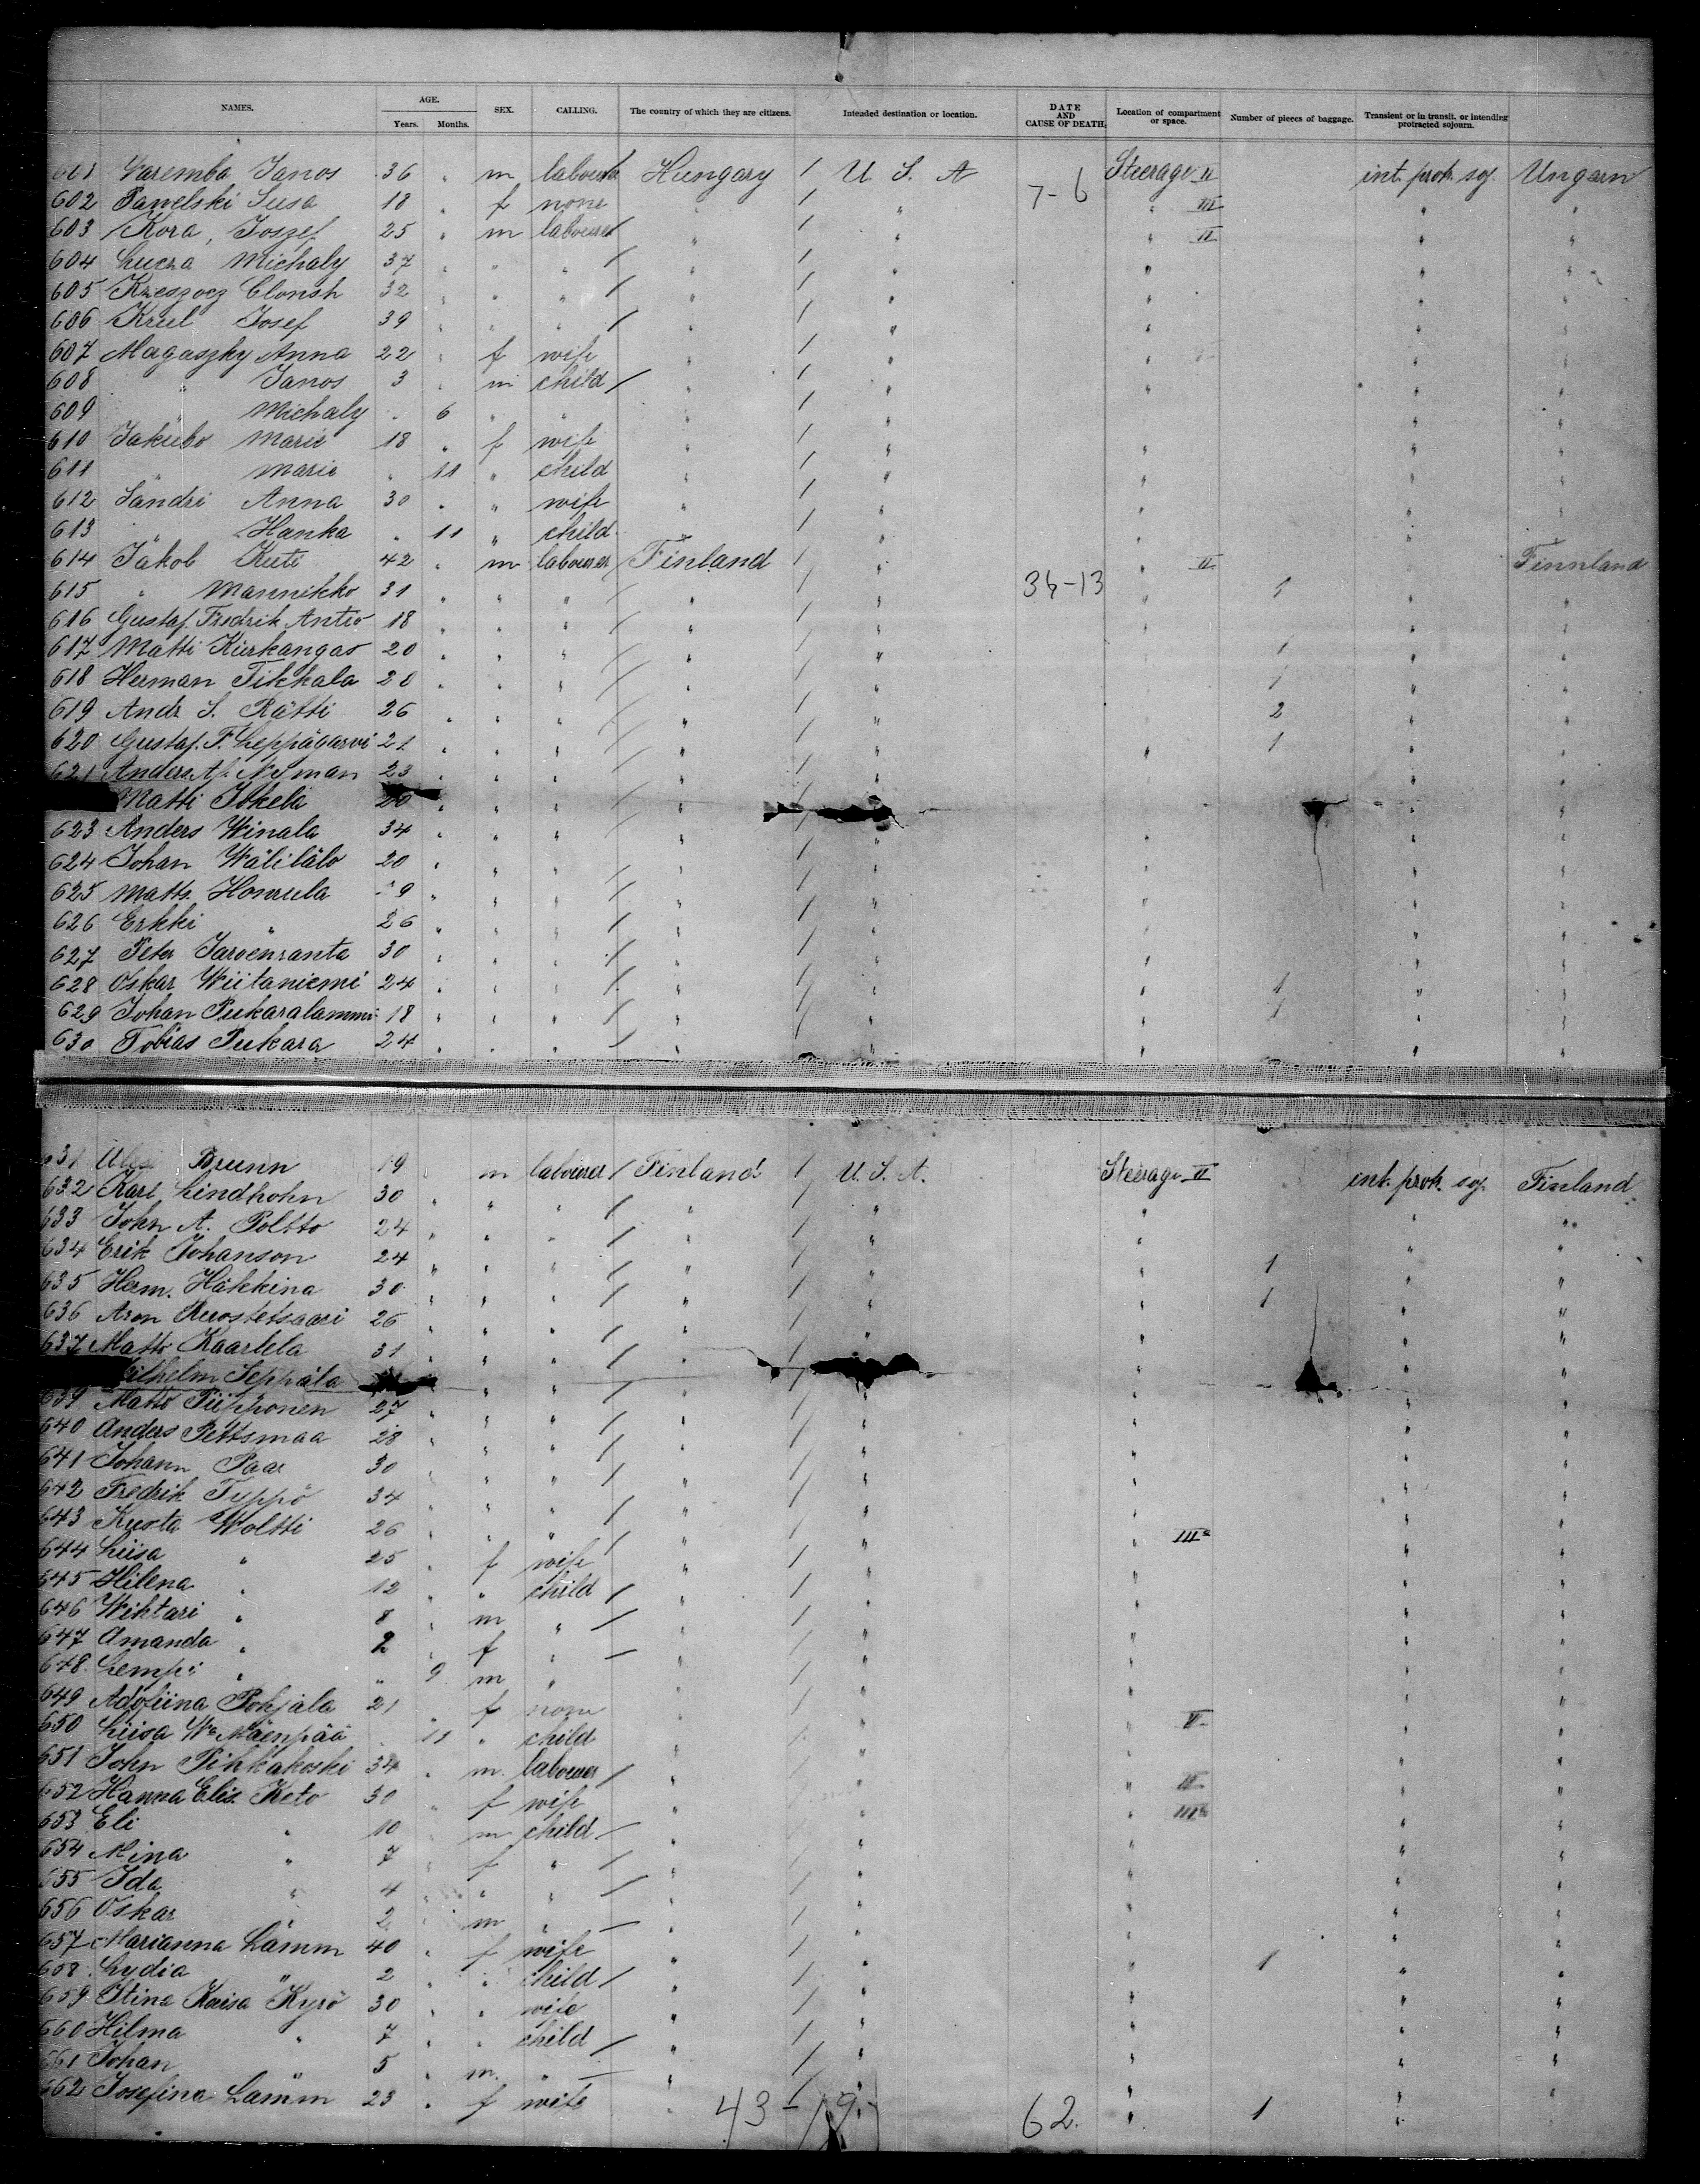 NAMES. AGE. Years. Months. SEX. CALLING. The country of which they are citizens. Intended destination or location. DATE AND CAUSE OF DEATH. Location of compartment or space. Number of pieces of baggage. Transient or in transit, or intending protracted sojourn.
601 Varemba Janos 36 " m labourer Hungary / U S. A Steerage II int. protr. soj. Ungarn
602 Pawelski Susa 18 " f none " / " 7-6 " III " "
603 Kora, Joszef 25 " m labourer / " / " " II " "
604 Lucza Michaly 37 " " " / " / " " " "
605 Krzeszocz Clonsh 32 " " " / " / " " " "
606 Krul Josef 39 " " " / " / " " " "
607 Magaszky Anna 22 " f wife " / " " " "
608 " Janos 3 " m child / " / " " " "
609 " Michaly " 6 " " " / " " "
610 Jakubo Marie 18 " f wife " / " " " "
611 " Marie " 11 " child " / " " " "
612 Sandri Anna 30 " " wife " / " " " "
613 " Hanka " 11 " child " / " " " "
614 Jakob Kuti 42 " m labourer / Finland / " " II Finnland
615 " Mannikko 31 " " " / " / " 36-13 " 1 " "
616 Gustaf Fredrik Antio 18 " " " / " / " " " "
617 Matti Kiurkangas 20 " " " / " / " 1 " "
618 Herman Tikkala 20 " " " / " / " 1 " "
619 Andr S. Rätti 26 " " " / " / " 2 " "
620 Gustaf. F. Leppäjarvi 21 " " " / " / " " 1 " "
621 Anders Af. Nyman 23 " " " / " / " " "
Matti Iokela 20 " " " / " / " "
623 Anders Winala 34 " " " / " / " " " "
624 Johan Wälilälo 20 " " " / " / " " " "
625 Matts. Honkula 9 " " " / " / " " " "
626 Erkki " 26 " " " / " / " " " "
627 Peter Jarvenranta 30 " " " / " / " " " "
628 Oskar Wiitaniemi 24 " " " / " / " " 1 " "
629 Johan Pukaralammi 18 " " " / " / " " 1 " "
630 Tobias Pukara 24 " " " / " / " " " "
631 Brunn 19 " m labourer / Finland / U. S. A. Steerage II int. protr. soj. Finland
632 Karl Lindhohn 30 " " " / " / " " " "
633 John A. Poltto 24 " " " / " / " " " "
634 Erik Johanson 24 " " " / " / " " 1 " "
635 Herm. Häkkina 30 " " " / " / " " 1 " "
636 Aron Ruostetsaari 26 " " " / " / " " " "
637 Matts Kaarlela 31 " " " / " / " "
ilhelm Seppäla " " / " / " " "
639 Matts Piipponen 27 " " " / " / " " " "
640 Anders Pettsmaa 28 " " " / " / " " " "
641 Johann Paae 30 " " " / " / " " " "
642 Fredrik Typpö 34 " " " / " / " " " "
643 Kusta Woltti 26 " " " / " / " " III " "
644 Liisa " 25 " f wife " / " " " "
645 Hilena " 12 " " child / " / " " " "
646 Wiktari " 8 " m " / " / " " " "
647 Amanda " 2 " f " / " / " " " "
648 Lempi " " 9 m " " / " " " "
649 Adofiina Pohjala 21 " f none " / " " II " "
650 Liisa Wa Mäenpää 11 " child " / " " "
651 John Pihkakoski 34 " m. labourer / " / " " II " "
652 Hanna Elis. Keto 30 " f wife " / " " III " "
653 Eli " 10 " m child / " / " " " "
654 Mina " 7 " f " / " / " " " "
655 Ida " 4 " " " / " / " " " "
656 Oskar " 2 " m " / " / " " " "
657 Marianna Lämm 40 " f wife " / " " 1 " "
658 Lydia " 2 " " child / " / " " " "
659 Stina Kaisa Kyrö 30 " " wife " / " " " "
660 Hilma " 7 " " child / " / " " " "
661 Johan " 5 " m. " / " / " " " "
662 Josefina Lamm 23 " f wife " 43-19 " 62. " 1 " "